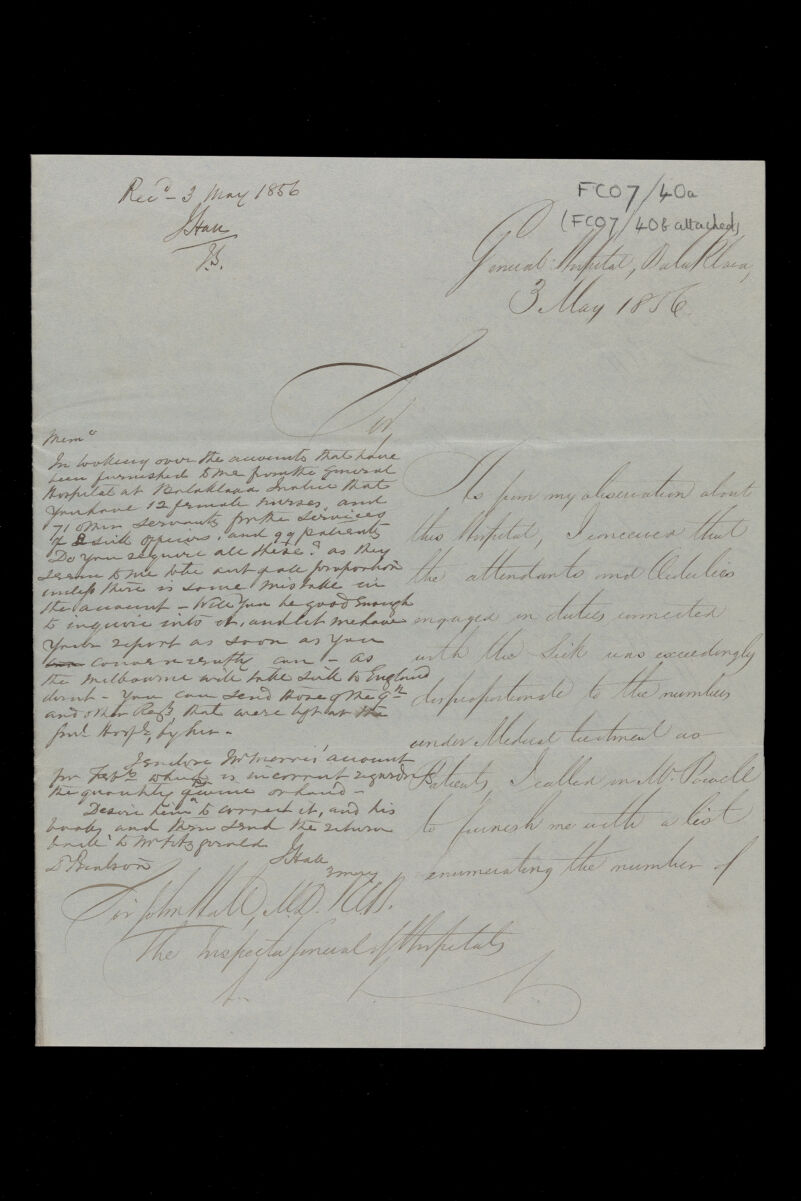 Rec'd - 3 May 1856
J Hall
FC07/40a
(FC07/40b attached)
General Hospital, Balaklava,
3 May 1856
Sir,
As from my observation about
this Hospital, I conceived that
the attendants and Orderlies
engaged in duties connected
with the Sick was exceedingly
disproportionate to the numbers
under Medical treatment as
Patients, I called on Mr. Powell
to furnish me with a list
enumerating the number of
Memo
In looking over the accounts that have
been furnished to me from the General
Hospital at Balaklava I notice that
you have 12 female nurses, and
71 other servants for the services
of 2 sick officers, and 99 patients
Do you require all these? as they
seem to me to be out of all proportion
unless there is some mistake in
the account - Will you be good enough
to inquire into it, and let me have
your report as soon as you
conveniently can - as
the Melbourne will take sick to England
direct - You can send those of the 9th
and other Regts that were left at the
Genl Hospl, by her -
I enclose Mr Morris' account
for Feby which is incorrect regarding
the quantity on hand -
Desire him to correct it, and his
books, and then send the return
back to Mr Fitzgerald
J Hall
3 May
Sir John Hall, M.D. K.C.B.
The Inspector General of Hospitals